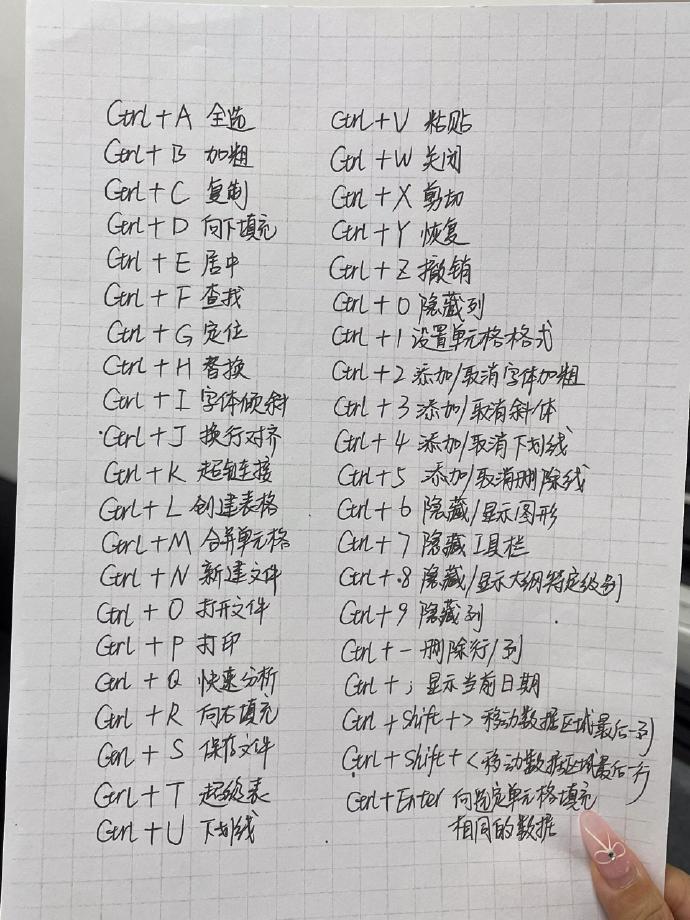 Ctrl+A 全选
Ctrl+B 加粗
Ctrl+C 复制
Ctrl+D 向下填充
Ctrl+E 居中
Ctrl+F 查找
Ctrl+G 定位
Ctrl+H 替换
Ctrl+I 字体倾斜
Ctrl+J 换行对齐
Ctrl+K 超链连接
Ctrl+L 创建表格
Ctrl+M 合并单元格
Ctrl+N 新建文件
Ctrl+O 打开文件
Ctrl+P 打印
Ctrl+Q 快速分析
Ctrl+R 向右填充
Ctrl+S 保存文件
Ctrl+T 超级表
Ctrl+U 下划线
Ctrl+V 粘贴
Ctrl+W 关闭
Ctrl+X 剪切
Ctrl+Y 恢复
Ctrl+Z 撤销
Ctrl+0 隐藏列
Ctrl+1 设置单元格格式
Ctrl+2 添加/取消字体加粗
Ctrl+3 添加/取消斜体
Ctrl+4 添加/取消下划线
Ctrl+5 添加/取消删除线
Ctrl+6 隐藏/显示图形
Ctrl+7 隐藏工具栏
Ctrl+8 隐藏/显示大纲特定级别
Ctrl+9 隐藏列
Ctrl+- 删除行/列
Ctrl+; 显示当前日期
Ctrl+Shift+> 移动数据区域最后一列
Ctrl+Shift+< 移动数据区域最后一行
Ctrl+Enter 向选定单元格填充
相同的数据